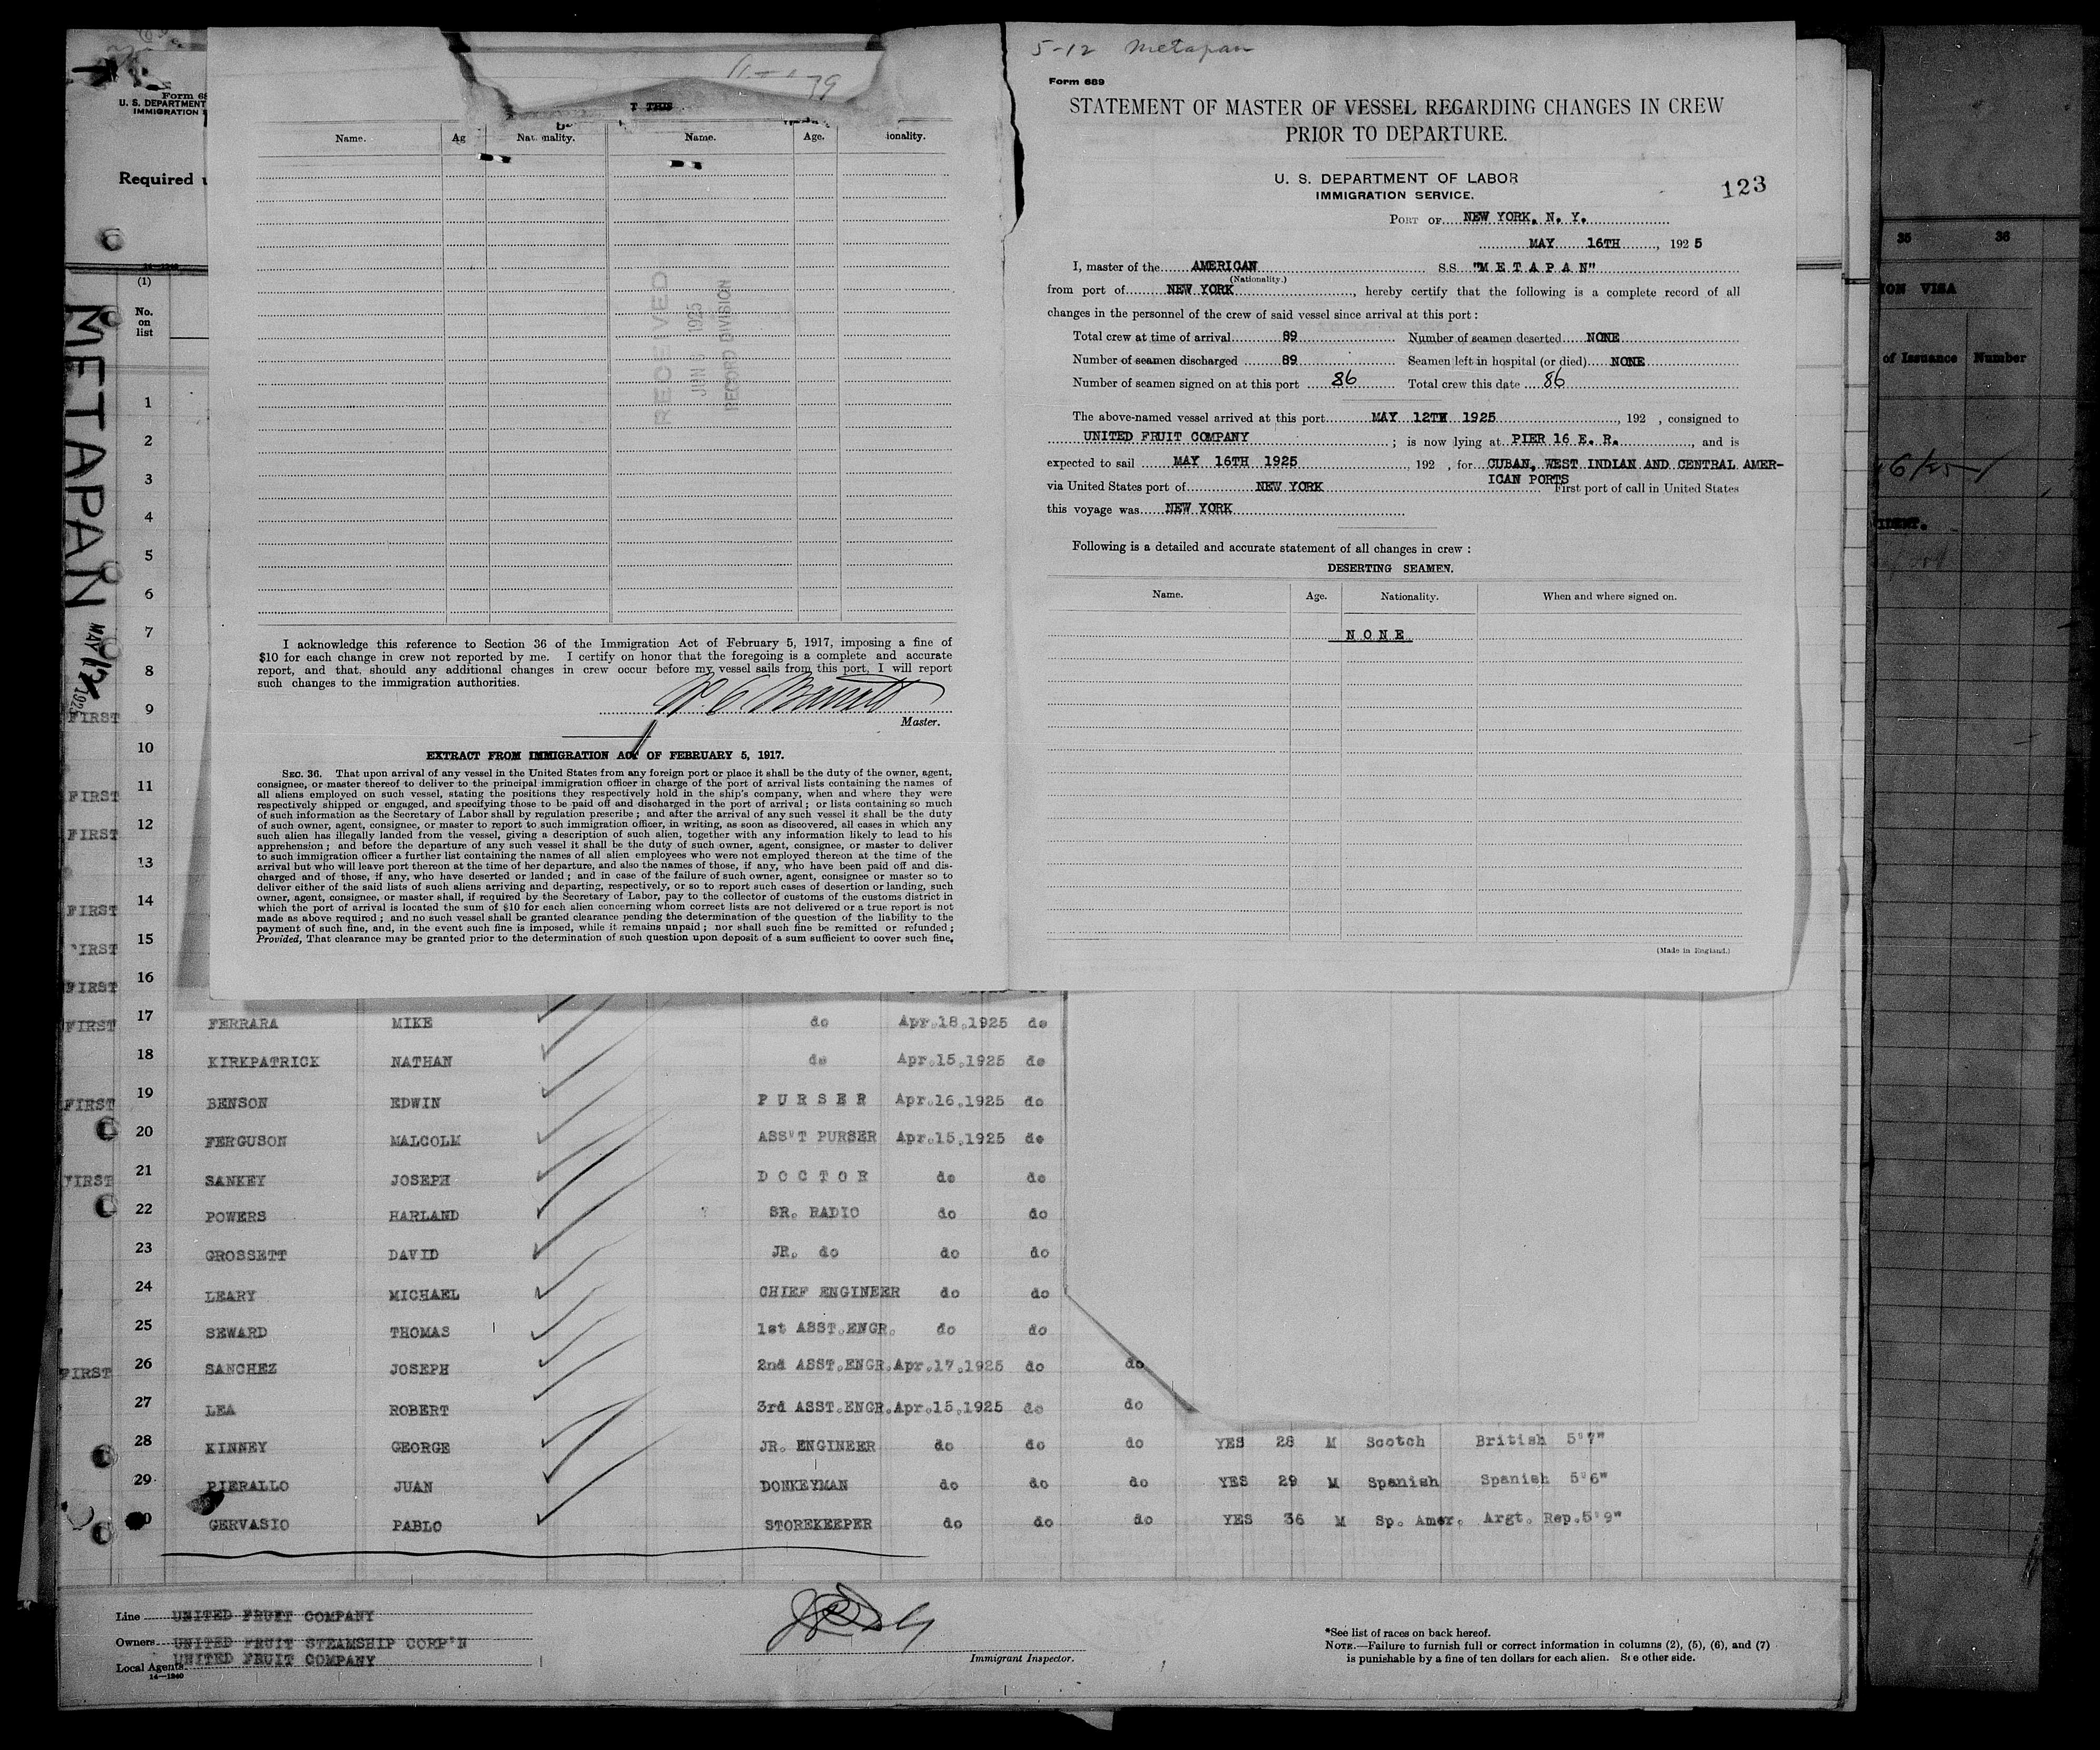 Form 68
U. S. DEPARTMENT
IMMIGRATION
Required
(1)
No.
on
list
METAPAN
MAY 12 1925
Name.
Ag
Nationality.
Name.
Age.
ionality.
RECEIVED
JUN 5 1925
RECORD DIVISION
I acknowledge this reference to Section 36 of the Immigration Act of February 5, 1917, imposing a fine of
$10 for each change in crew not reported by me. I certify on honor that the foregoing is a complete and accurate
report, and that, should any additional changes in crew occur before my vessel sails from this port, I will report
such changes to the immigration authorities.
Master.
EXTRACT FROM IMMIGRATION ACT OF FEBRUARY 5, 1917.
SEC. 36. That upon arrival of any vessel in the United States from any foreign port or place it shall be the duty of the owner, agent,
consignee, or master thereof to deliver to the principal immigration officer in charge of the port of arrival lists containing the names of
all aliens employed on such vessel, stating the positions they respectively hold in the ship's company, when and where they were
respectively shipped or engaged, and specifying those to be paid off and discharged in the port of arrival; or lists containing so much
of such information as the Secretary of Labor shall by regulation prescribe; and after the arrival of any such vessel it shall be the duty
of such owner, agent, consignee, or master to report to such immigration officer, in writing, as soon as discovered, all cases in which any
such alien has illegally landed from the vessel, giving a description of such alien, together with any information likely to lead to his
apprehension; and before the departure of any such vessel it shall be the duty of such owner, agent, consignee, or master to deliver
to such immigration officer a further list containing the names of all alien employees who were not employed thereon at the time of the
arrival but who will leave port thereon at the time of her departure, and also the names of those, if any, who have been paid off and dis-
charged and of those, if any, who have deserted or landed; and in case of the failure of such owner, agent, consignee or master so to
deliver either of the said lists of such aliens arriving and departing, respectively, or so to report such cases of desertion or landing, such
owner, agent, consignee, or master shall, if required by the Secretary of Labor, pay to the collector of customs of the customs district in
which the port of arrival is located the sum of $10 for each alien concerning whom correct lists are not delivered or a true report is not
made as above required; and no such vessel shall be granted clearance pending the determination of the question of the liability to the
payment of such fine, and, in the event such fine is imposed, while it remains unpaid; nor shall such fine be remitted or refunded;
Provided, That clearance may be granted prior to the determination of such question upon deposit of a sum sufficient to cover such fine,
5-12 Metapan
Form 689
STATEMENT OF MASTER OF VESSEL REGARDING CHANGES IN CREW
PRIOR TO DEPARTURE.
U. S. DEPARTMENT OF LABOR
IMMIGRATION SERVICE.
123
PORT OF NEW YORK, N. Y.
MAY 16TH, 1925
I, master of the AMERICAN S.S. "M E T A P A N"
(Nationality.)
from port of NEW YORK, hereby certify that the following is a complete record of all
changes in the personnel of the crew of said vessel since arrival at this port:
Total crew at time of arrival 89 Number of seamen deserted NONE
Number of seamen discharged 89 Seamen left in hospital (or died) NONE
Number of seamen signed on at this port 86 Total crew this date 86
The above-named vessel arrived at this port MAY 12TH 1925, 192 , consigned to
UNITED FRUIT COMPANY ; is now lying at PIER 16 E. R., and is
expected to sail MAY 16TH 1925 192 , for CUBAN, WEST INDIAN AND CENTRAL AMER-
ICAN PORTS
via United States port of NEW YORK First port of call in United States
this voyage was NEW YORK
Following is a detailed and accurate statement of all changes in crew:
DESERTING SEAMEN.
Name. Age. Nationality. When and where signed on.
N O N E
(Made in England.)
35 36
ION VISA
of Issuance Number
IDENT.
1
2
3
4
5
6
7
8
FIRST 9
10
FIRST 11
FIRST 12
13
FIRST 14
FIRST 15
FIRST 16
FIRST 17 FERRARA MIKE do Apr.18.1925 do
18 KIRKPATRICK NATHAN do Apr.15.1925 do
FIRST 19 BENSON EDWIN P U R S E R Apr.16.1925 do
20 FERGUSON MALCOLM ASS'T PURSER Apr.15.1925 do
FIRST 21 SANKEY JOSEPH D O C T O R do do
22 POWERS HARLAND SR. RADIO do do
23 GROSSETT DAVID JR. do do do
24 LEARY MICHAEL CHIEF ENGINEER do do
25 SEWARD THOMAS 1st ASST.ENGR. do do
FIRST 26 SANCHEZ JOSEPH 2nd ASST.ENGR.Apr.17.1925 do do
27 LEA ROBERT 3rd ASST.ENGR.Apr.15.1925 do do
28 KINNEY GEORGE JR. ENGINEER do do do YES 28 M Scotch British 5'7"
29 PIERALLO JUAN DONKEYMAN do do do YES 29 M Spanish Spanish 5'6"
0 GERVASIO PABLO STOREKEEPER do do do YES 36 M Sp. Amer. Argt. Rep.5'9"
Line UNITED FRUIT COMPANY
Owners UNITED FRUIT STEAMSHIP CORP'N
Local Agents UNITED FRUIT COMPANY
14—1240
Immigrant Inspector.
*See list of races on back hereof.
NOTE.—Failure to furnish full or correct information in columns (2), (5), (6), and (7)
is punishable by a fine of ten dollars for each alien. See other side.